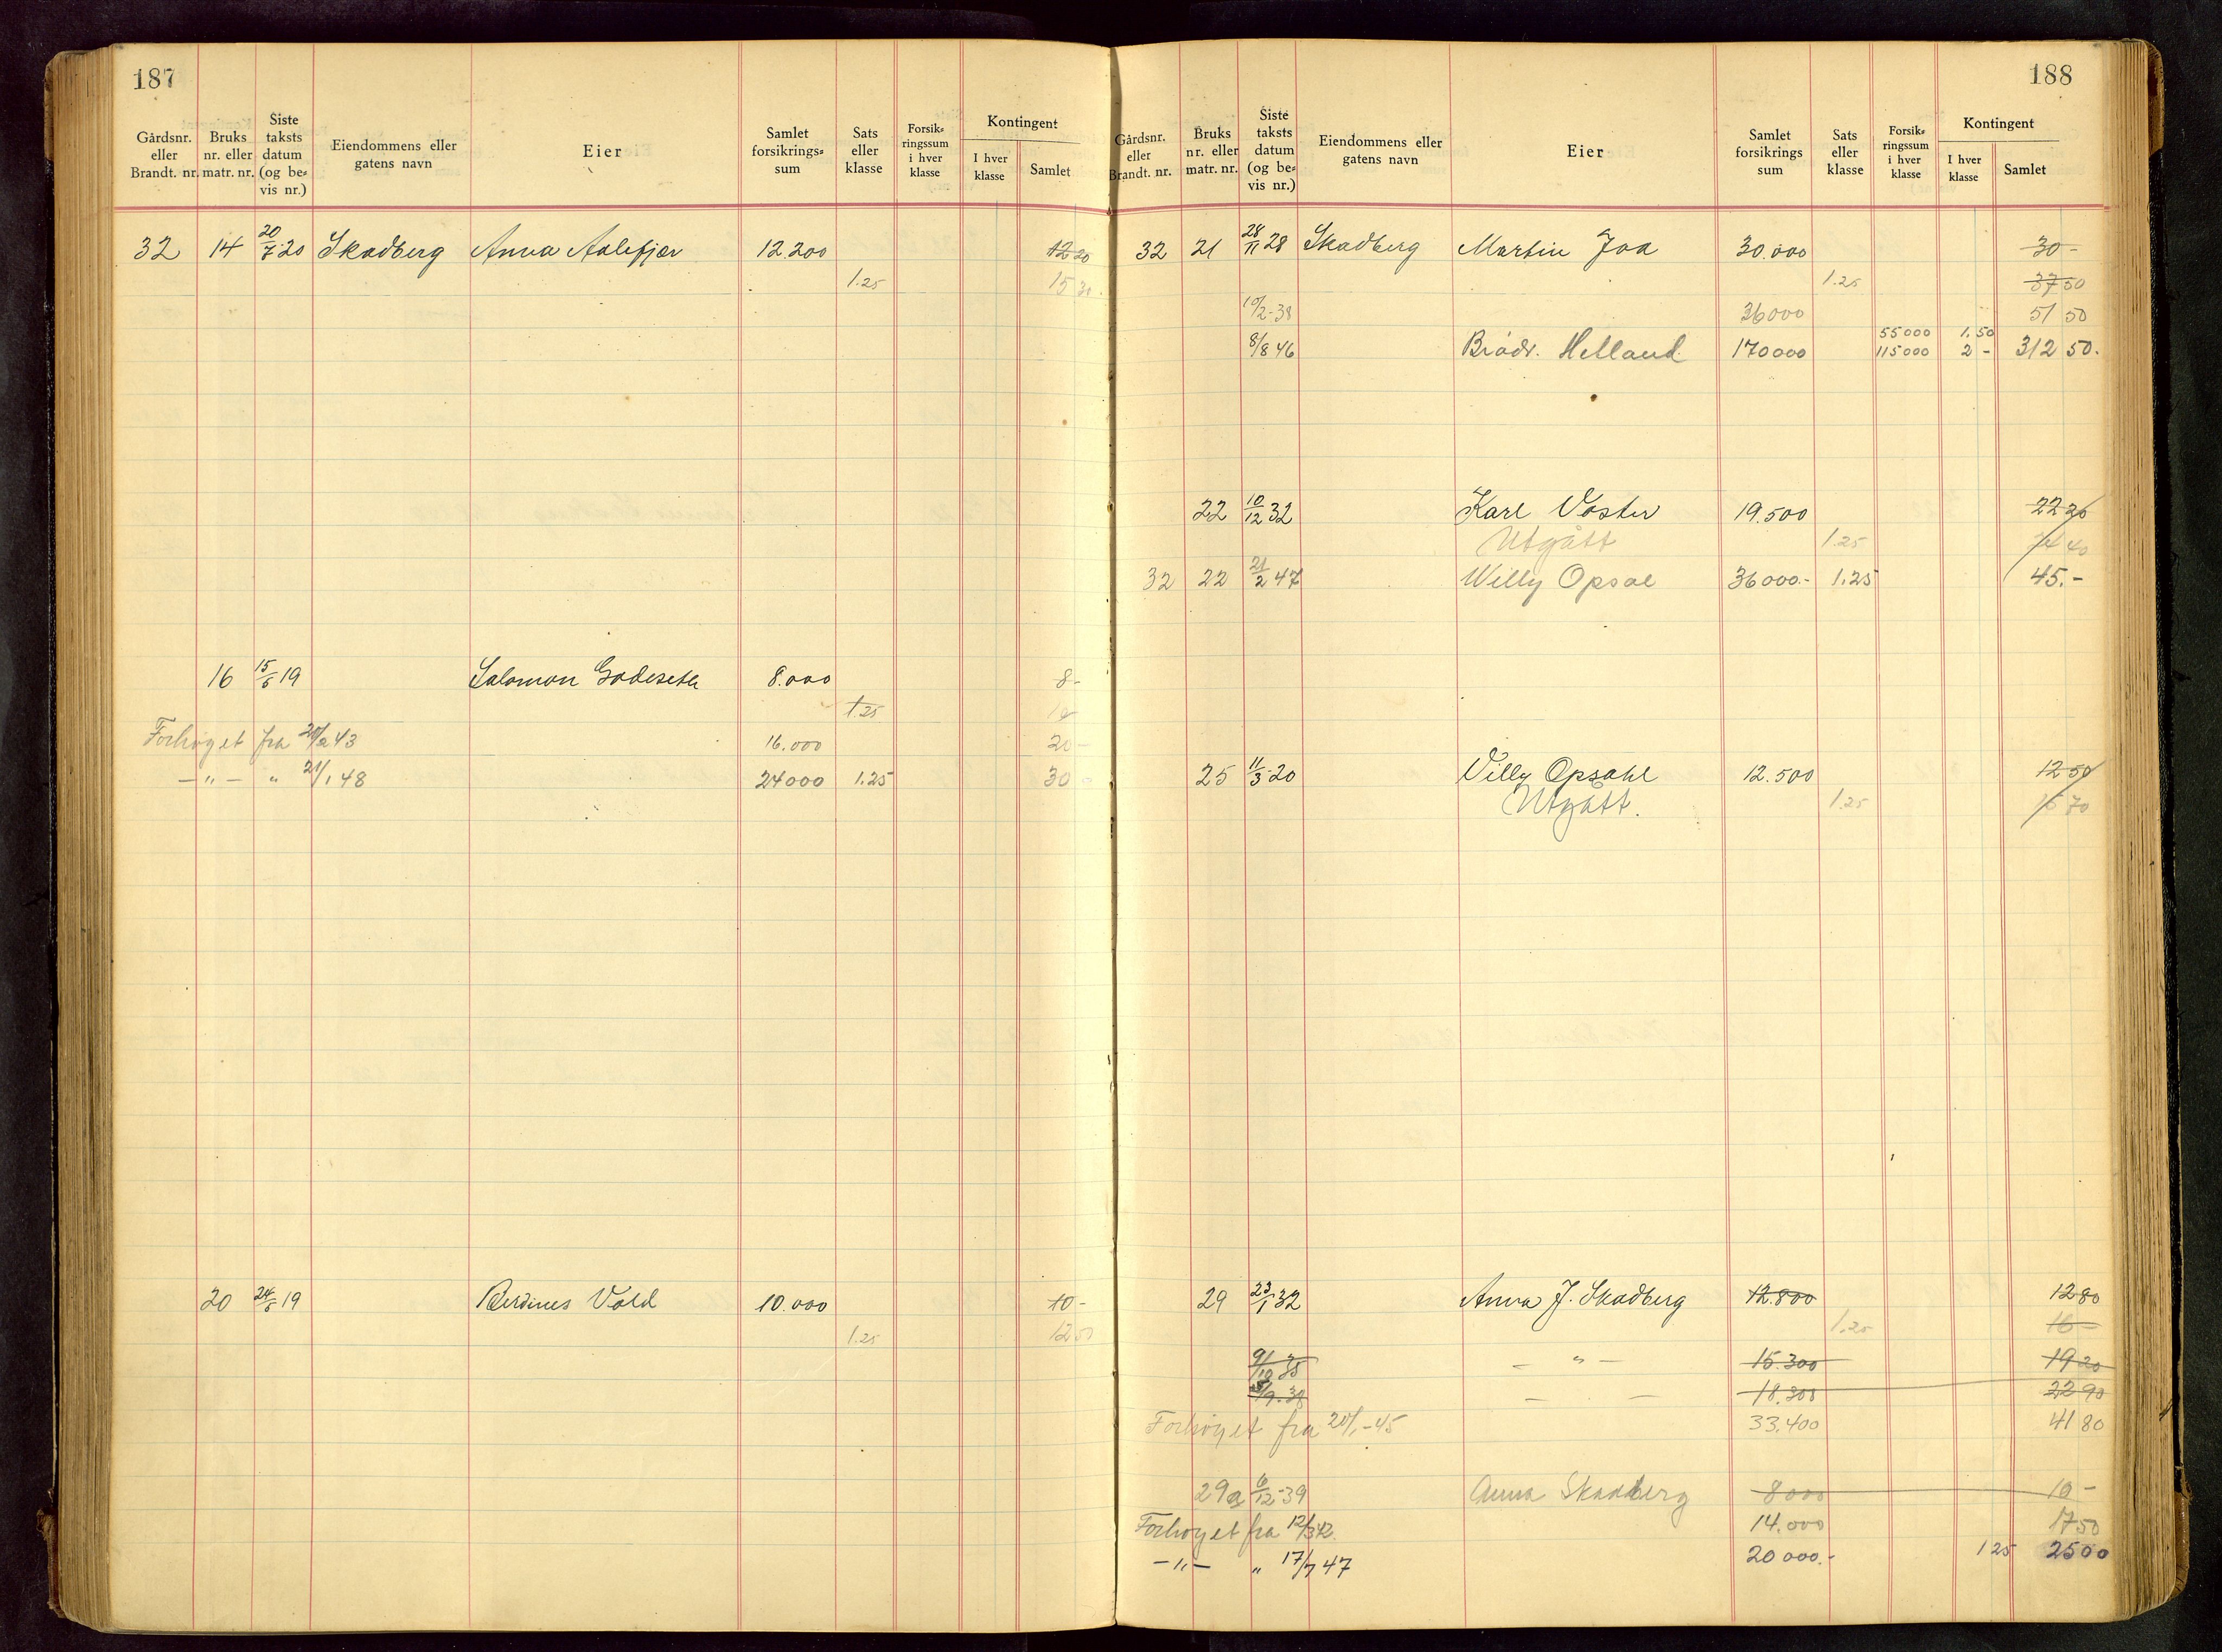 187
Gårdsnr. eller Brandt. nr. Bruks nr. eller matr. nr. Siste taksts datum (og bevis nr.) Eiendommens eller gatens navn Eier Samlet forsikrings=sum Sats eller klasse Forsik=ringssum i hver klasse Kontingent I hver klasse Samlet
32 14 20/7-20 Skadberg Anna Aalefjær 12.200 12 20
1.25 15 30
16 15/6 19 Salomon Godeseth 8.000 8-
1.25 10
Forhøyet fra 20/2 43 16.000 20-
-"- " 21/1 48 24000 1.25 30
20 24/6 19 Berdines Vold 10.000 10-
1.25 12 50
188
Gårdsnr. eller Brandt. nr. Bruks nr. eller matr. nr. Siste taksts datum (og be=vis nr.) Eiendommens eller gatens navn Eier Samlet forsikrings sum Sats eller klasse Forsik=ringssum i hver klasse Kontingent I hver klasse Samlet
32 21 28/11 28 Skadberg Martin Joa 30.000 30-
1.25 37 50
10/2-38 36000 51 50
55000 1,50
8/8 46 Brødr. Helland 170000 115000 2- 312 50.
22 10/12 32 Karl Vaster 19.500 22 20
Utgått 1.25 40
32 22 21/2 47 Willy Opsal 36000.- 1.25 45.-
25 11/3-20 Villy Opsahl 12.500 12 50
Utgått. 1.25 15 70
29 23/1 32 Anna J. Skadberg 12.800 12 80
1.25 16-
9/10 35 - " - 15.300 19 20
/9-38 - - 18.300 22 90
Forhøyet fra 20/1-45 33.400 41 80
29a 6/12-39 Anna Skadberg 8000 10-
Forhøyet fra 12/3 42 14.000 17 50
-"- " 17/7 47 20000.- 1 25 25 00